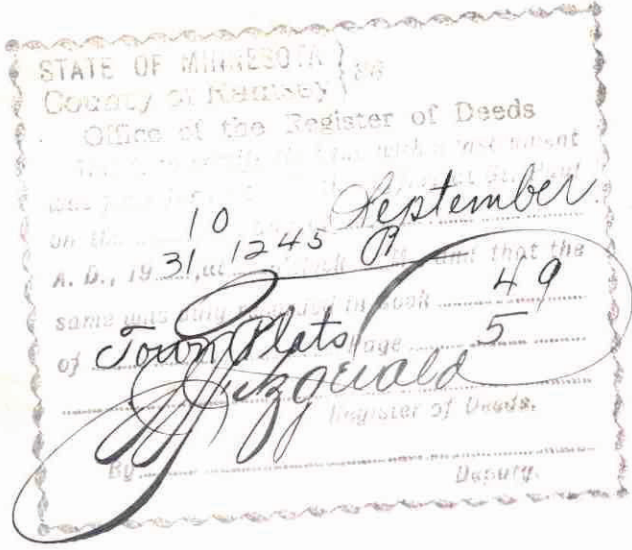 STATE OF MINNESOTA } SS
County of Ramsey
Office of the Register of Deeds
on the 10 September
A. D., 1931, at 1245 o'clock P M., and that the
same was duly recorded in book 49
of Town Plats page 5
Fitzgerald
Register of Deeds.
By
Deputy.